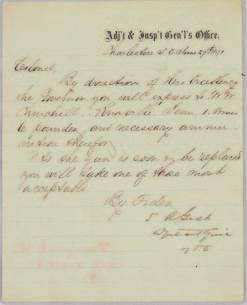 Adj't & Insp't Gen'l's Office,
Charleston S C June 29th
Colonel.
By direction of His Excellency
the Governor you will express to W W
Knoxville, Tenn. 1.
6 pounder, and necessary ammu-
nition therefor.
As the Gun is soon to be replaced
you will take one of those most
acceptable
By Order
S R Gist
Adjt and Genl
of S C